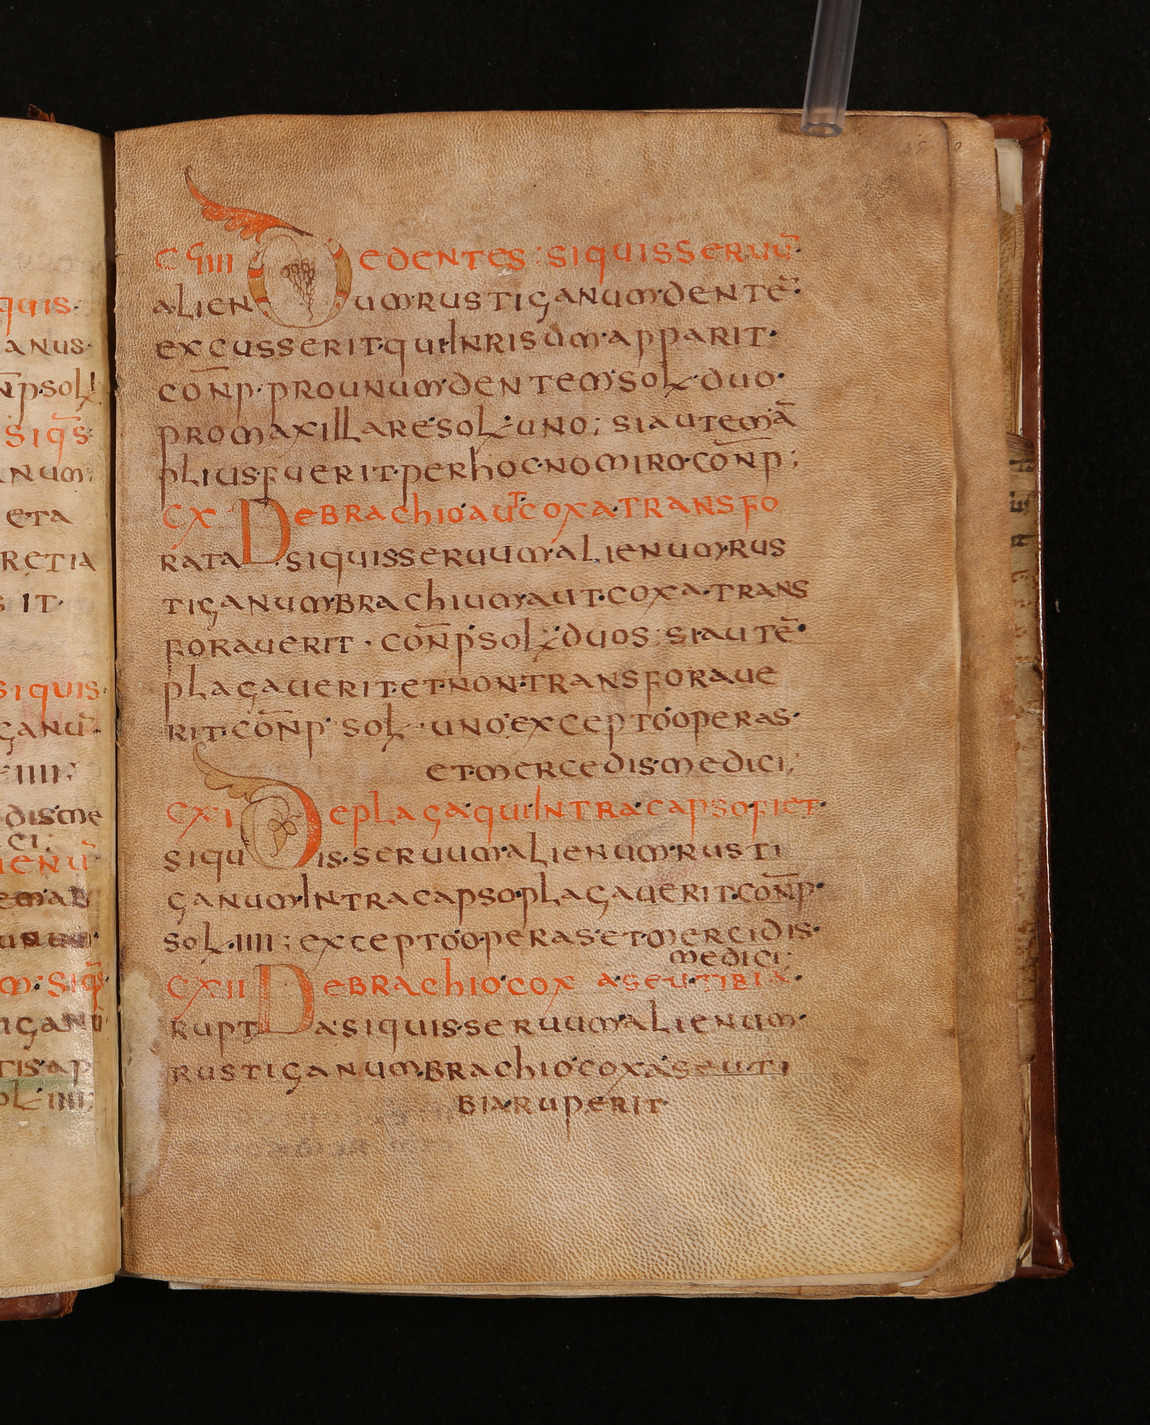 quis·
anus·
n̄p·sol
siq̄s
num;
eta
retia
s it·
siquis·
ganū·
·iiii·
dis·me
ci;
ienū
m·siq̄s·
tis·ap
ol·iiii;
CVIIII DEDENTES: SIQUISSERUŪ·
ALIENUM·RUSTIGANUM·DENTĒ·
EXCUSSERIT·QUI·INRISUM·APPARIT·
CON̄P·PROUNUM·DENTEM·SOL·DUO·
PROMAXILLARE·SOL·UNO; SIAUTEM·Ā
PLIUS·FUERIT·PERHOC·NOMIRO·CON̄P;
CX DEBRACHIO·AUT·COXA·TRANSFO
RATA·SIQUISSERUUM·ALIENUM·RUS
TIGANUM·BRACHIUM·AUT·COXA·TRANS
FORAUERIT· CON̄P·SOL·DUOS· SIAUTĒ·
PLAGAUERIT·ET·NON·TRANSFORAUE
RIT·CON̄P· SOL·UNO·EXCEPTO·OPERAS·
ET·MERCEDIS·MEDICI;
CXI DEPLAGA·QUI·INTRA·CAPSO·FIET·
SIQUIS·SERUUM·ALIENUM·RUSTI
GANUM·INTRACAPSO·PLAGAUERIT·CON̄P·
SOL·IIII; EXCEPTO·OPERAS·ET·MERCIDIS·
MEDICI;
CXII DEBRACHIO·COX A·SEU·TIBIA·
RUPTA·SIQUIS·SERUUM·ALIENUM·
RUSTIGANUM·BRACHIO·COXA·SEUTI
BIA·RUPERIT·